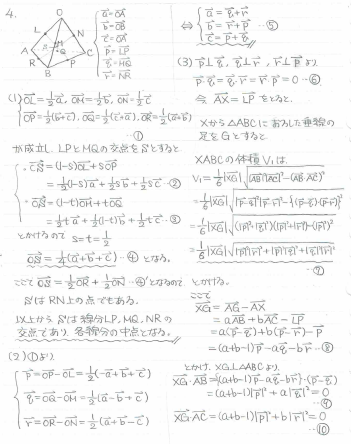 4.
O
L M N
A C
R P
B
a = OA
b = OB
c = OC
p = LP
q = MQ
r = NR
(1) OL = 1/2 a, OM = 1/2 b, ON = 1/2 c
OP = 1/2 (b + c), OQ = 1/2 (c + a), OR = 1/2 (a + b)
…①
が成立し、LPとMQの交点をS'とすると
OS' = (1-s)OL + sOP
= 1/2 (1-s)a + 1/2 s b + 1/2 s c …②
OS' = (1-t)OM + tOQ
= 1/2 t a + 1/2 (1-t) b + 1/2 t c …③
とかけるので s = t = 1/2
OS' = 1/4 (a + b + c) …④ となる。
ここで OS' = 1/2 OR + 1/2 ON …④' となるので
S'はRN上の点である。
以上から S'は線分LP, MQ, NRの
交点であり、各線分の中点となる。
(2) ①より
p = OP - OL = 1/2 (-a + b + c)
q = OQ - OM = 1/2 (a - b + c)
r = OR - ON = 1/2 (a + b - c)
⇔ a = q + r
b = r + p …⑤
c = p + q
(3) p ⊥ q, q ⊥ r, r ⊥ p より
p・q = q・r = r・p = 0 …⑥
今 AX = LP をとると、
Xから△ABCにおろした垂線の
足をGとすると
XABCの体積V₁は、
V₁ = 1/6 |XG| √(|AB|²|AC|² - (AB・AC)²)
= 1/6 |XG| √(|p-q|²|p-r|² - {(p-q)・(p-r)}²)
= 1/6 |XG| √((|p|²+|q|²)(|p|²+|r|²) - (|p|²)²)
= 1/6 |XG| √(|p|²|r|² + |p|²|q|² + |q|²|r|²)
…⑦
とかける。
ここで
XG = AG - AX
= aAB + bAC - LP
= a(p - q) + b(p - r) - p
= (a+b-1)p - aq - br …⑧
とかけ、XG⊥△ABCより、
XG・AB = {(a+b-1)p - aq - br}・(p - q)
= (a+b-1)|p|² + a|q|² = 0
…⑨
XG・AC = (a+b-1)|p|² + b|r|² = 0
…⑩